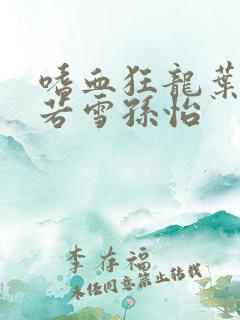 嗜血狂龍葉
若雪孫怡
李存福
未经同意禁止转载